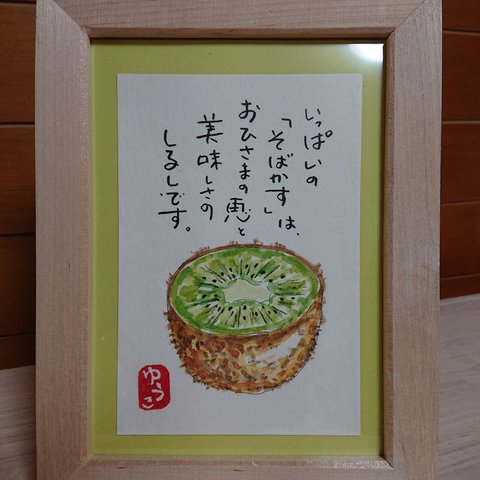 いっぱいの
「そばかす」は、
おひさまの恵と
美味しさの
しるしです。
ゆうこ